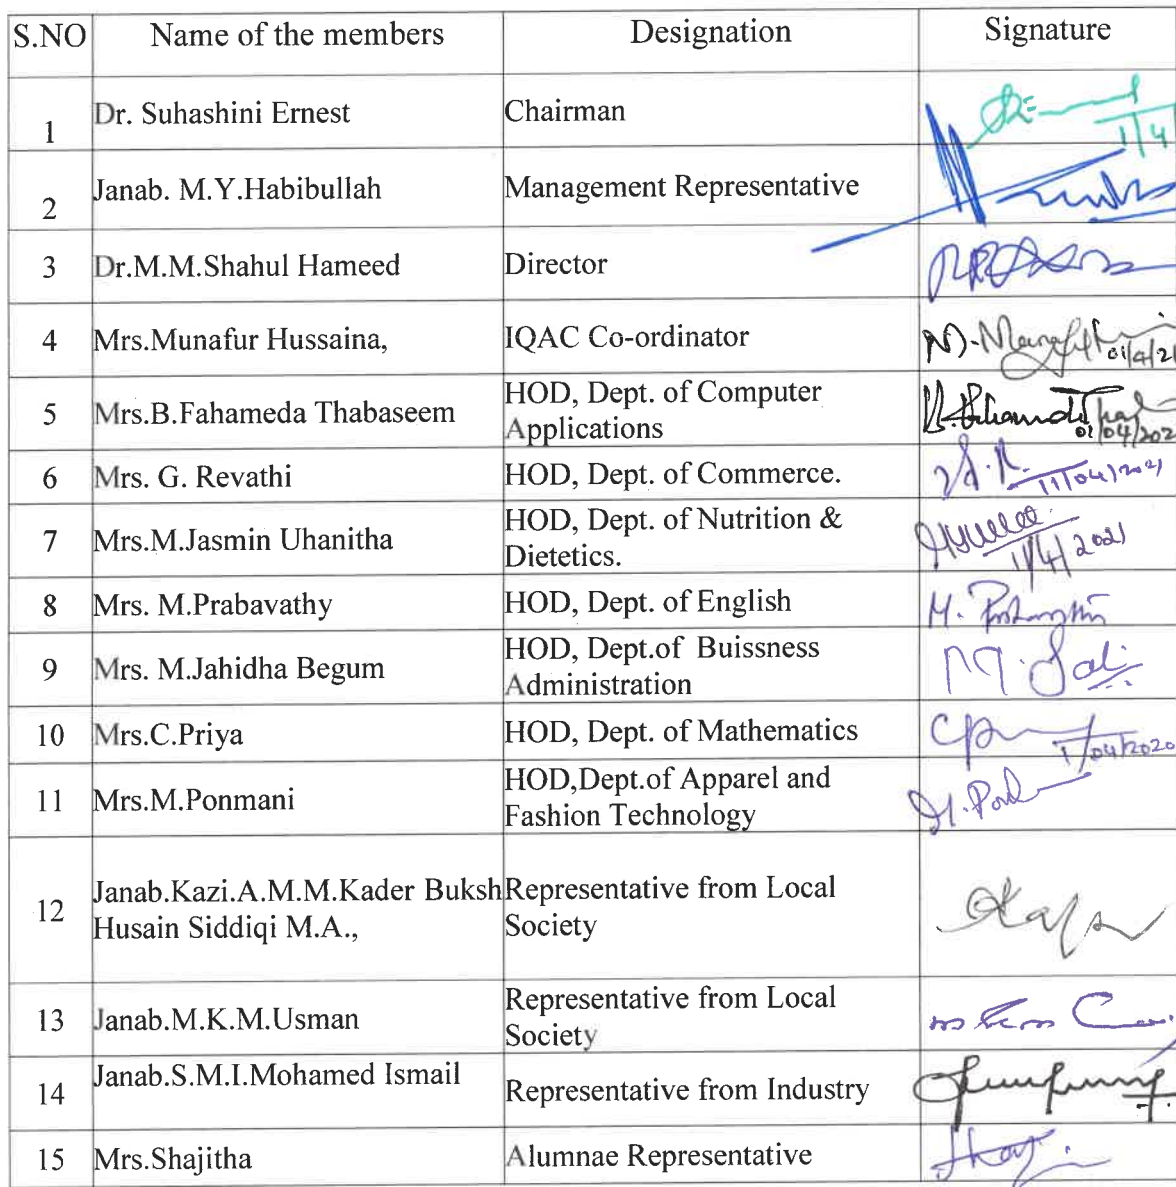 S.NO Name of the members Designation Signature
1 Dr. Suhashini Ernest Chairman
1/4
2 Janab. M.Y.Habibullah Management Representative
3 Dr.M.M.Shahul Hameed Director
4 Mrs.Munafur Hussaina, IQAC Co-ordinator
01/4/21
5 Mrs.B.Fahameda Thabaseem HOD, Dept. of Computer
Applications
01/04/202
6 Mrs. G. Revathi HOD, Dept. of Commerce.
11/04/2021
7 Mrs.M.Jasmin Uhanitha HOD, Dept. of Nutrition &
Dietetics.
1/4/2021
8 Mrs. M.Prabavathy HOD, Dept. of English
9 Mrs. M.Jahidha Begum HOD, Dept.of Buissness
Administration
10 Mrs.C.Priya HOD, Dept. of Mathematics
1/04/2020
11 Mrs.M.Ponmani HOD,Dept.of Apparel and
Fashion Technology
12 Janab.Kazi.A.M.M.Kader Buksh Representative from Local
Husain Siddiqi M.A., Society
13 Janab.M.K.M.Usman Representative from Local
Society
14 Janab.S.M.I.Mohamed Ismail Representative from Industry
15 Mrs.Shajitha Alumnae Representative